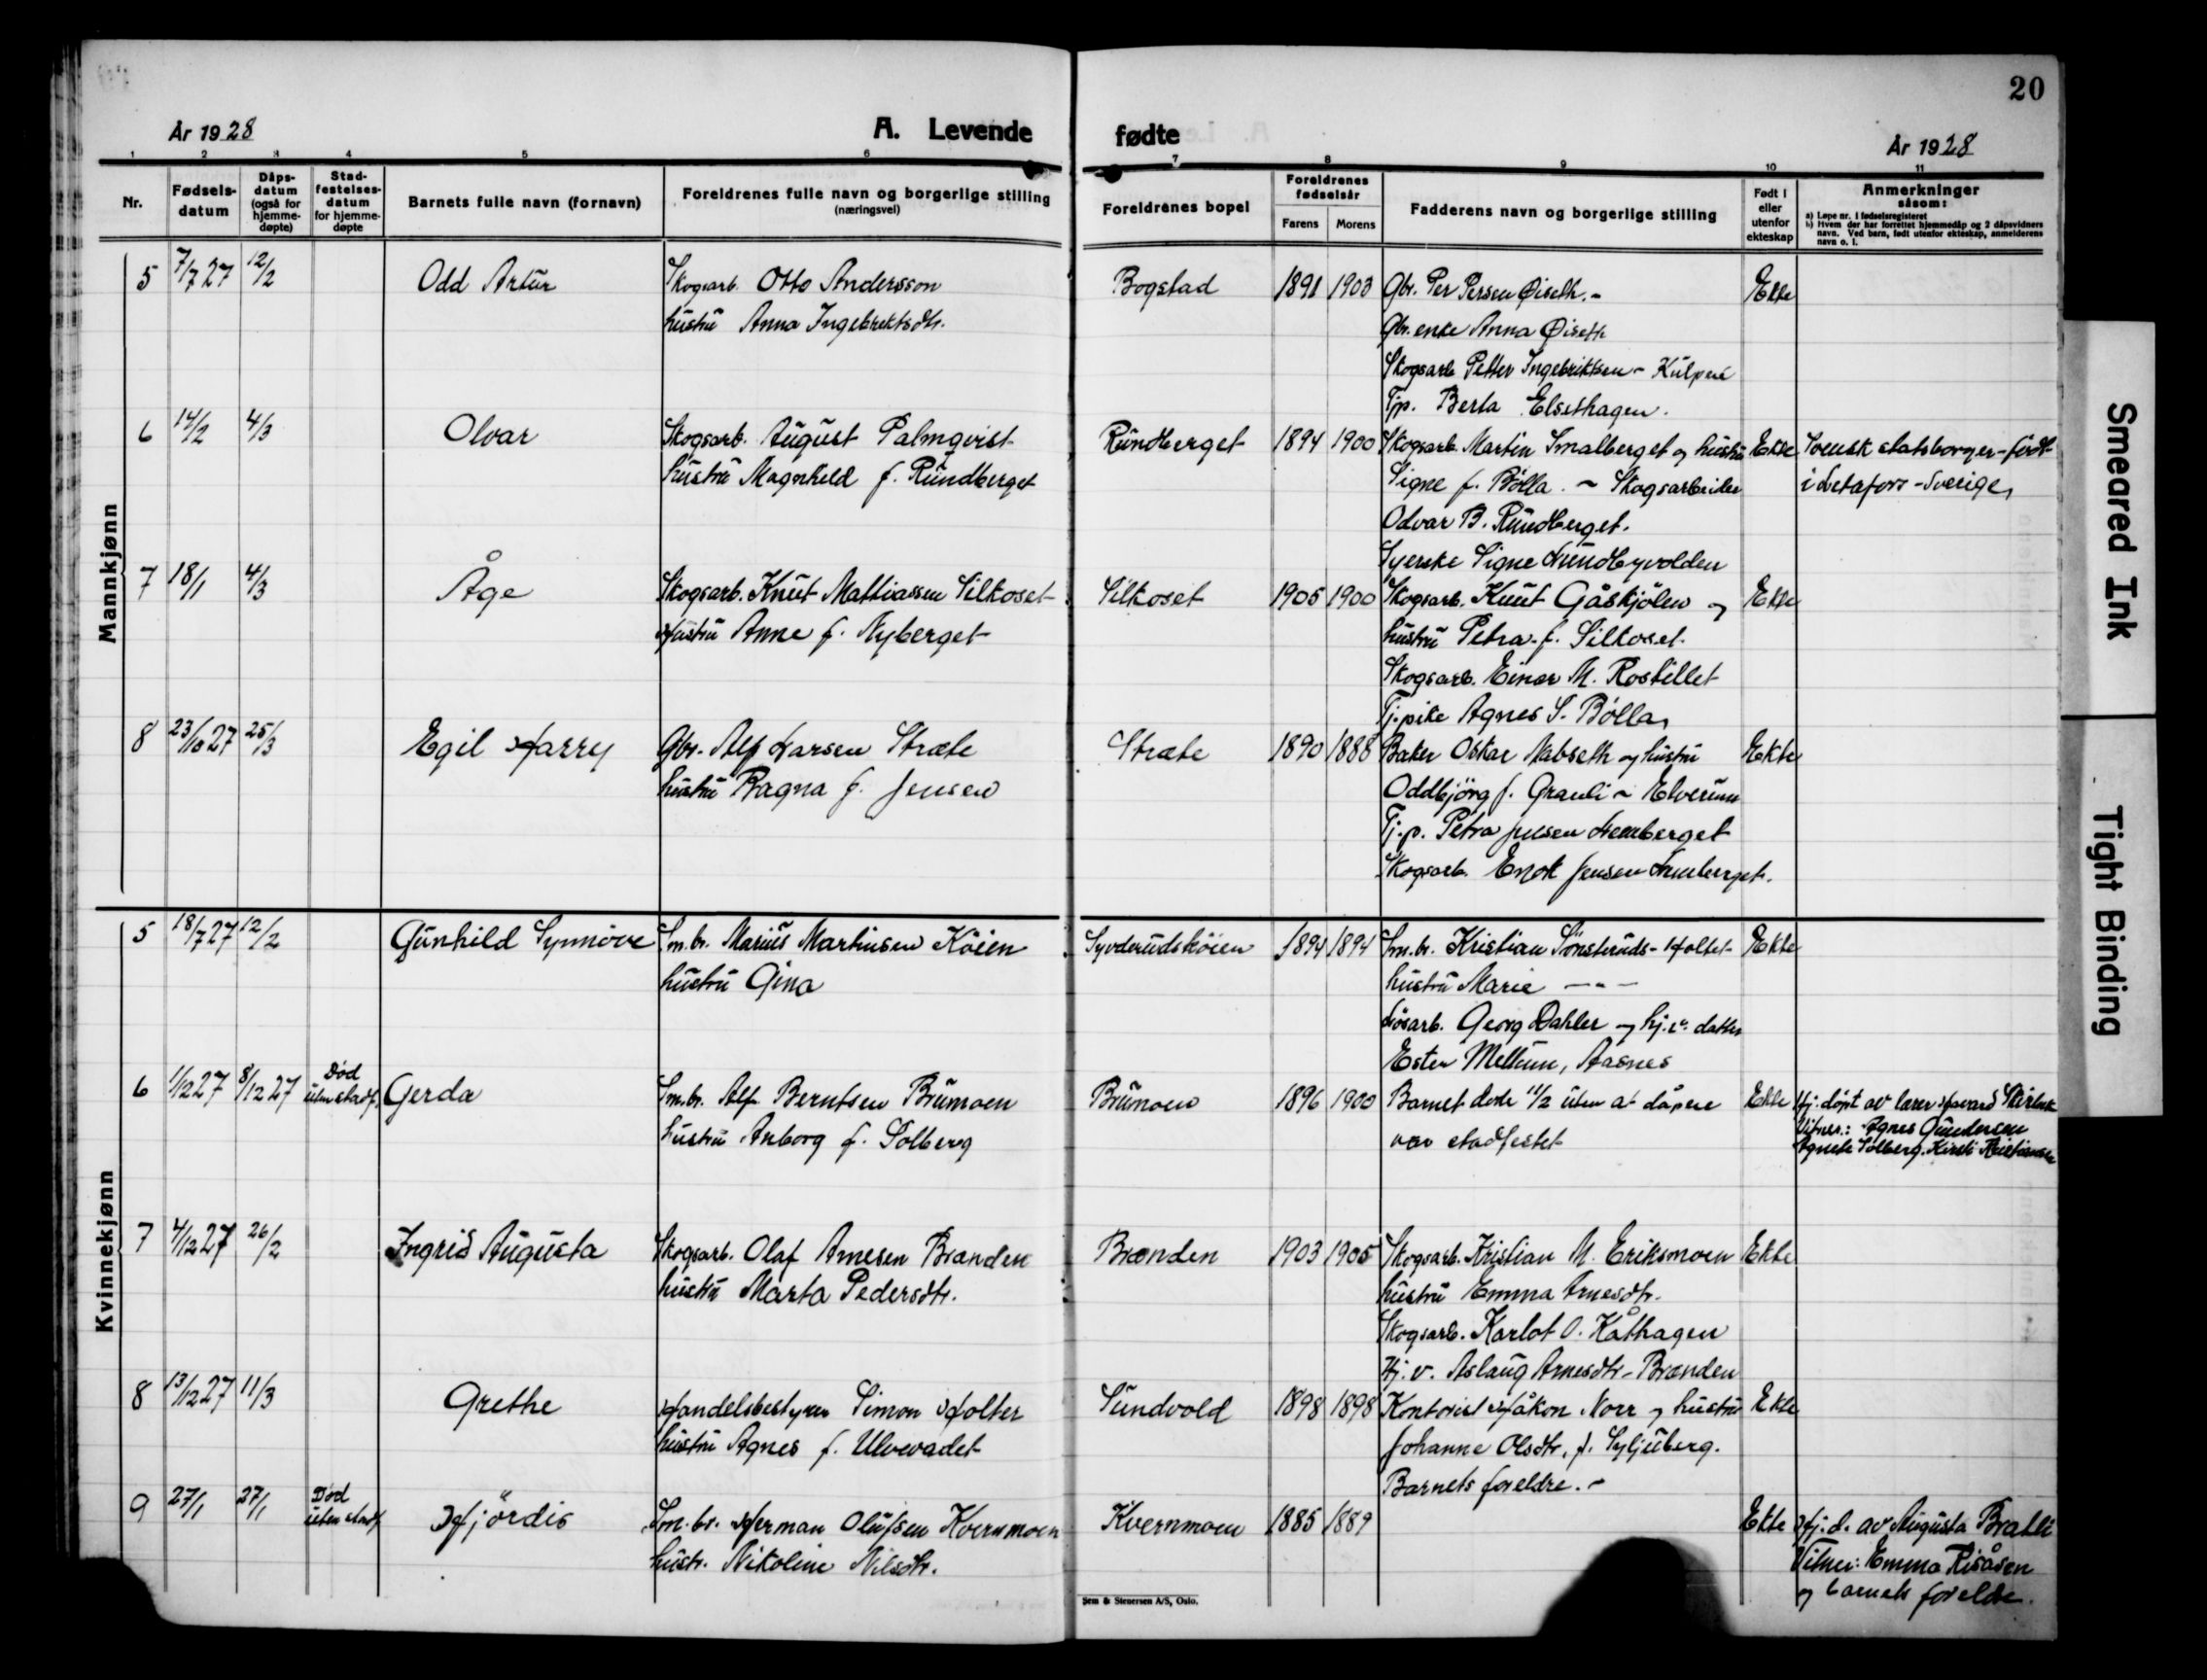 20
År 1928
A. Levende
fødte
År 1928
1 2 3 4 5 6 7 8 9 10 11
Nr.
Fødsels-
datum
Dåps-
datum
(også for
hjemme-
døpte)
Stad-
festelses-
datum
for hjemme-
døpte
Barnets fulle navn (fornavn)
Foreldrenes fulle navn og borgerlige stilling
(næringsvei)
Foreldrenes bopel
Foreldrenes
fødselsår
Farens
Morens
Fadderens navn og borgerlige stilling
Født i
eller
utenfor
ekteskap
Anmerkninger
såsom:
a) Løpe nr. i fødselsregisteret
b) Hvem der har forrettet hjemmedåp og 2 dåpsvidners
navn. Ved barn, født utenfor ekteskap, anmelderens
navn o. l.
Mannkjønn
5 7/7 27 12/2 Odd Artur Skogsarb. Otto Andersson Bogstad 1891 1903 Gbr. Per Persen Øiseth. - Ekte
hustru Anna Ingebriktsdtr. Gbr. enke Anna Øiseth
Skogsarb Petter Ingebriktsen -
Tjp. Berta Elsethagen.
6 14/2 4/3 Olvar Skogsarb. August Palmqvist Rundberget 1894 1900 Skogsarb. Martin Smalberget og hustru Ekte Svensk statsborger - født
hustru Magnhild f. Rundberget Signe f. Bölla. - Skogsarbeider i Letafors - Sverige,
Odvar B. Rundberget.
Syerske Signe Lundbyvolden
7 18/1 4/3 Åge Skogsarb. Knut Mattiassen Silkoset Silkoset 1905 1900 Skogsarb. Knut Gåskjølen og Ekte
Hustru Anne f. Nyberget hustru Petra f. Silkoset.
Skogsarb. Einar M. Rostillet
Tj.pike Agnes S. Bölla,
8 23/10 27 25/3 Egil Harry Gbr. Alf Larsen Stræte Stræte 1890 1888 Baker Oskar Nabseth og hustru Ekte
hustru Ragna f. Jensen Oddbjörg f. Grauli - Elverum
Tj.p. Petra Jensen Lemberget
Skogsarb. Enok Jensen Lemberget.
Kvinnekjønn
5 18/7 27 12/2 Gunhild Synnöve Sm.br. Marius Martinsen Köien Syvderudsköien 1894 1894 Sm.br. Kristian Sönsteruds-Holtet Ekte
hustru Gina hustru Marie - " -
Lösarb. Georg Dahler og hj.v. datter
Ester Mellum, Aasnes
6 1/12 27 8/12 27 Död
uten stadf. Gerda Sm.br. Alf Berntsen Brumoen Brumoen 1896 1900 Barnet döde 11/2 uten at dåpen Ekte Hj. döpt av lærer Havard
hustru Anborg f. Solberg var stadfestet Vitner: Agnes Gundersen
Agnete Solberg. Kirsti Kristiansen
7 4/12 27 26/2 Ingrid Augusta Skogsarb. Olaf Arnesen Brænden Brænden 1903 1905 Skogsarb. Kristian M. Eriksmoen Ekte
hustru Marta Pedersdtr. hustru Emma Arnesdtr.
Skogsarb. Karlot O. Kåthagen
Hj. v. Aslaug Arnesdtr - Brænden
8 13/12 27 11/3 Grethe Handelsbestyrer Simon Holter Sundvold 1898 1898 Kontorist Håkon Norr og hustru Ekte
hustru Agnes f. Ulvevadet Johanne Olsdtr. f. Syljuberg.
Barnets foreldre. -
9 27/1 27/1 Död
uten stadf Hjördis Sm.br. Herman Olufsen Kvernmoen Kvernmoen 1885 1889 Ekte Hj.d. av Augusta Bratli
hustr. Nikoline Nilsdtr. Vitner: Emma Risåsen
og barnets foreldre.
Sem & Stenersen A/S, Oslo.
Smeared Ink
Tight Binding